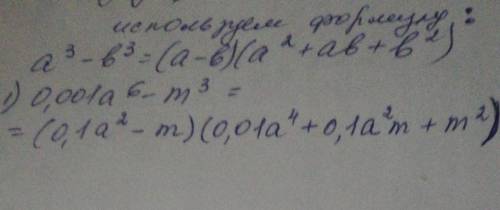 используем формулу:
a³-b³=(a-b)(a²+ab+b²)
1) 0,001a⁶-m³=
=(0,1a²-m)(0,01a⁴+0,1a²m+m²)